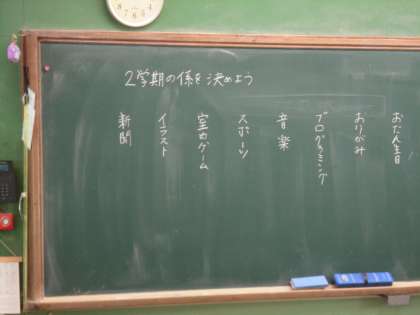 2学期の係を決めよう
おたん生日
おりがみ
プログラミング
音楽
スポーツ
室内ゲーム
イラスト
新聞